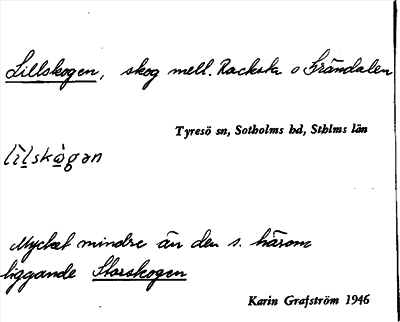 Lillskogen, skog mell. Racksta o Grändalen
Tyresö sn, Sotholms hd, Sthlms län
lìlskògən
Mycket mindre än den s. härom
liggande Storskogen
Karin Grafström 1946